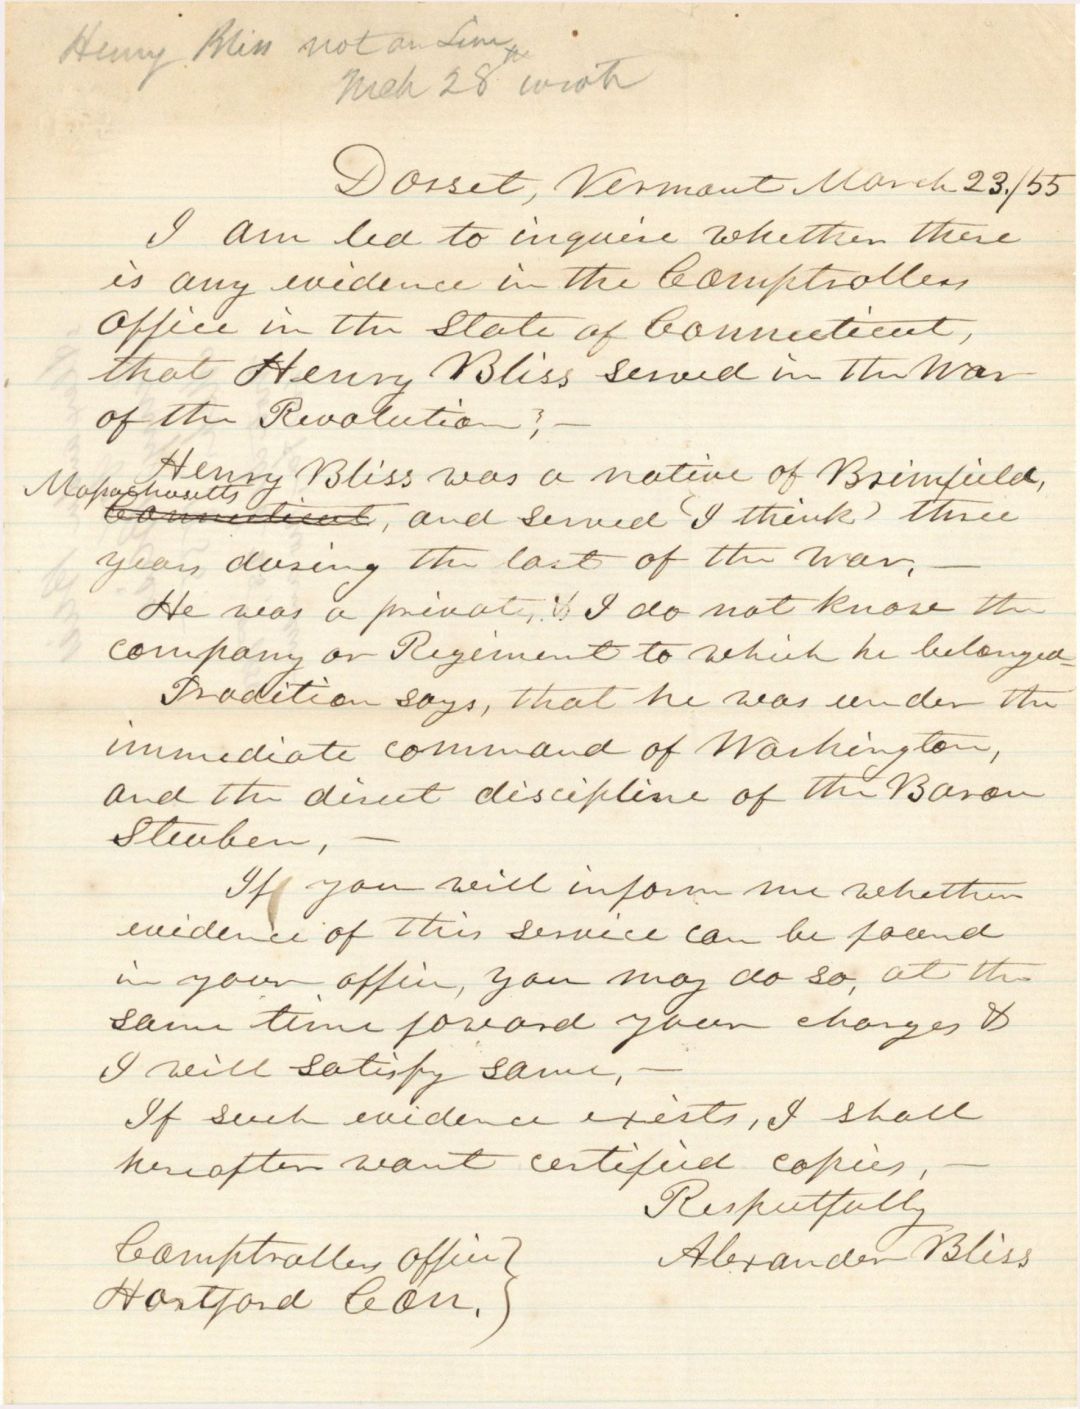 Henry Bliss not on
Mch 28th wrote
Dorset, Vermont March 23./55
I am led to inquire whether there
is any evidence in the Comptrollers
Office in the State of Connecticut,
that Henry Bliss served in the War
of the Revolution?, —
Henry Bliss was a native of Brimfield,
Massachusetts
Connecticut, and served (I think) three
years during the last of the war, —
He was a private, & I do not know the
company or Regiment to which he belonged—
Tradition says, that he was under the
immediate command of Washington,
and the direct discipline of the Baron
Steuben, —
If you will inform me whether
evidence of this service can be found
in your office, you may do so, at the
same time forward your charges &
I will satisfy same, —
If such evidence exists, I shall
hereafter want certified copies, —
Respectfully
Alexander Bliss
Comptrollers office }
Hartford Con. }